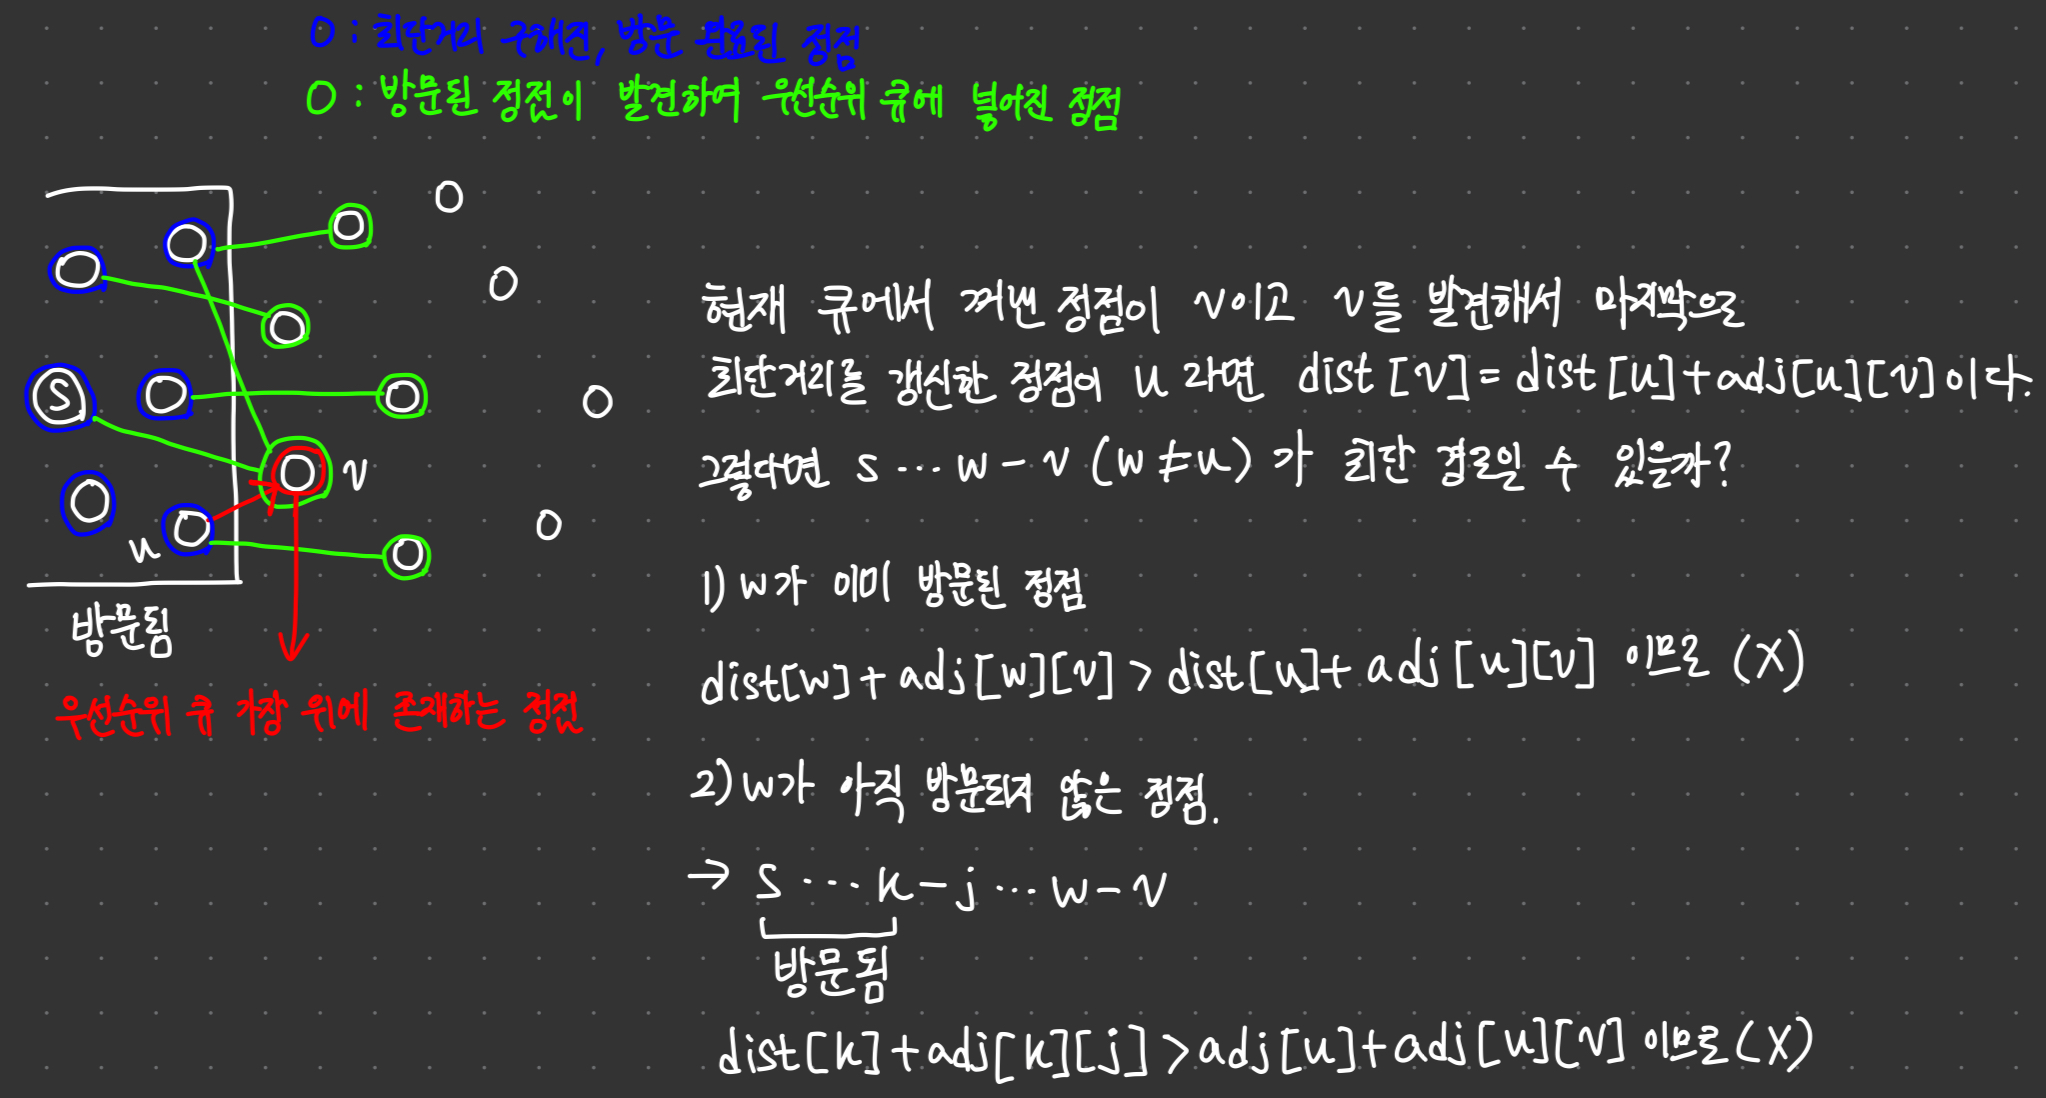 O : 최단거리 구해진, 방문 완료된 정점
O : 방문된 정점이 발견하여 우선순위 큐에 넣어진 정점
S
v
u
방문됨
우선순위 큐 가장 위에 존재하는 정점
현재 큐에서 꺼낸 정점이 v이고 v를 발견해서 마지막으로
최단거리를 갱신한 정점이 u 라면 dist[v]=dist[u]+adj[u][v]이다.
그렇다면 s ··· w - v (w ≠ u) 가 최단 경로일 수 있을까?
1) w가 이미 방문된 정점
dist[w]+adj[w][v] > dist[u]+adj[u][v] 이므로 (X)
2) w가 아직 방문되지 않은 정점.
→ s ··· k - j ··· w - v
방문됨
dist[k]+adj[k][j] > adj[u]+adj[u][v] 이므로 (X)